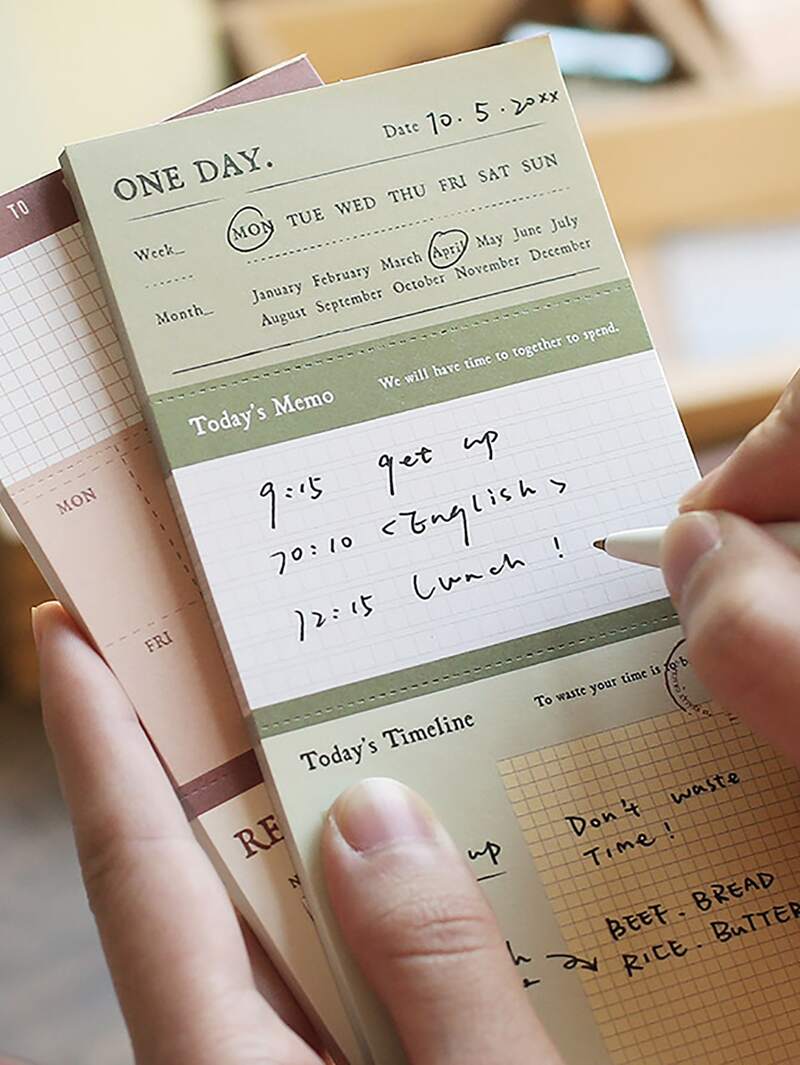 Date 10.5.20xx
ONE DAY.
Week_ MON TUE WED THU FRI SAT SUN
Month_ January February March April May June July
August September October November December
Today's Memo We will have time to together to spend.
9:15 get up
10:10 <English>
12:15 Lunch!
Today's Timeline To waste your time is to
up
Don't waste
Time!
BEEF. BREAD
RICE. BuTTER
TO
MON
FRI
RE